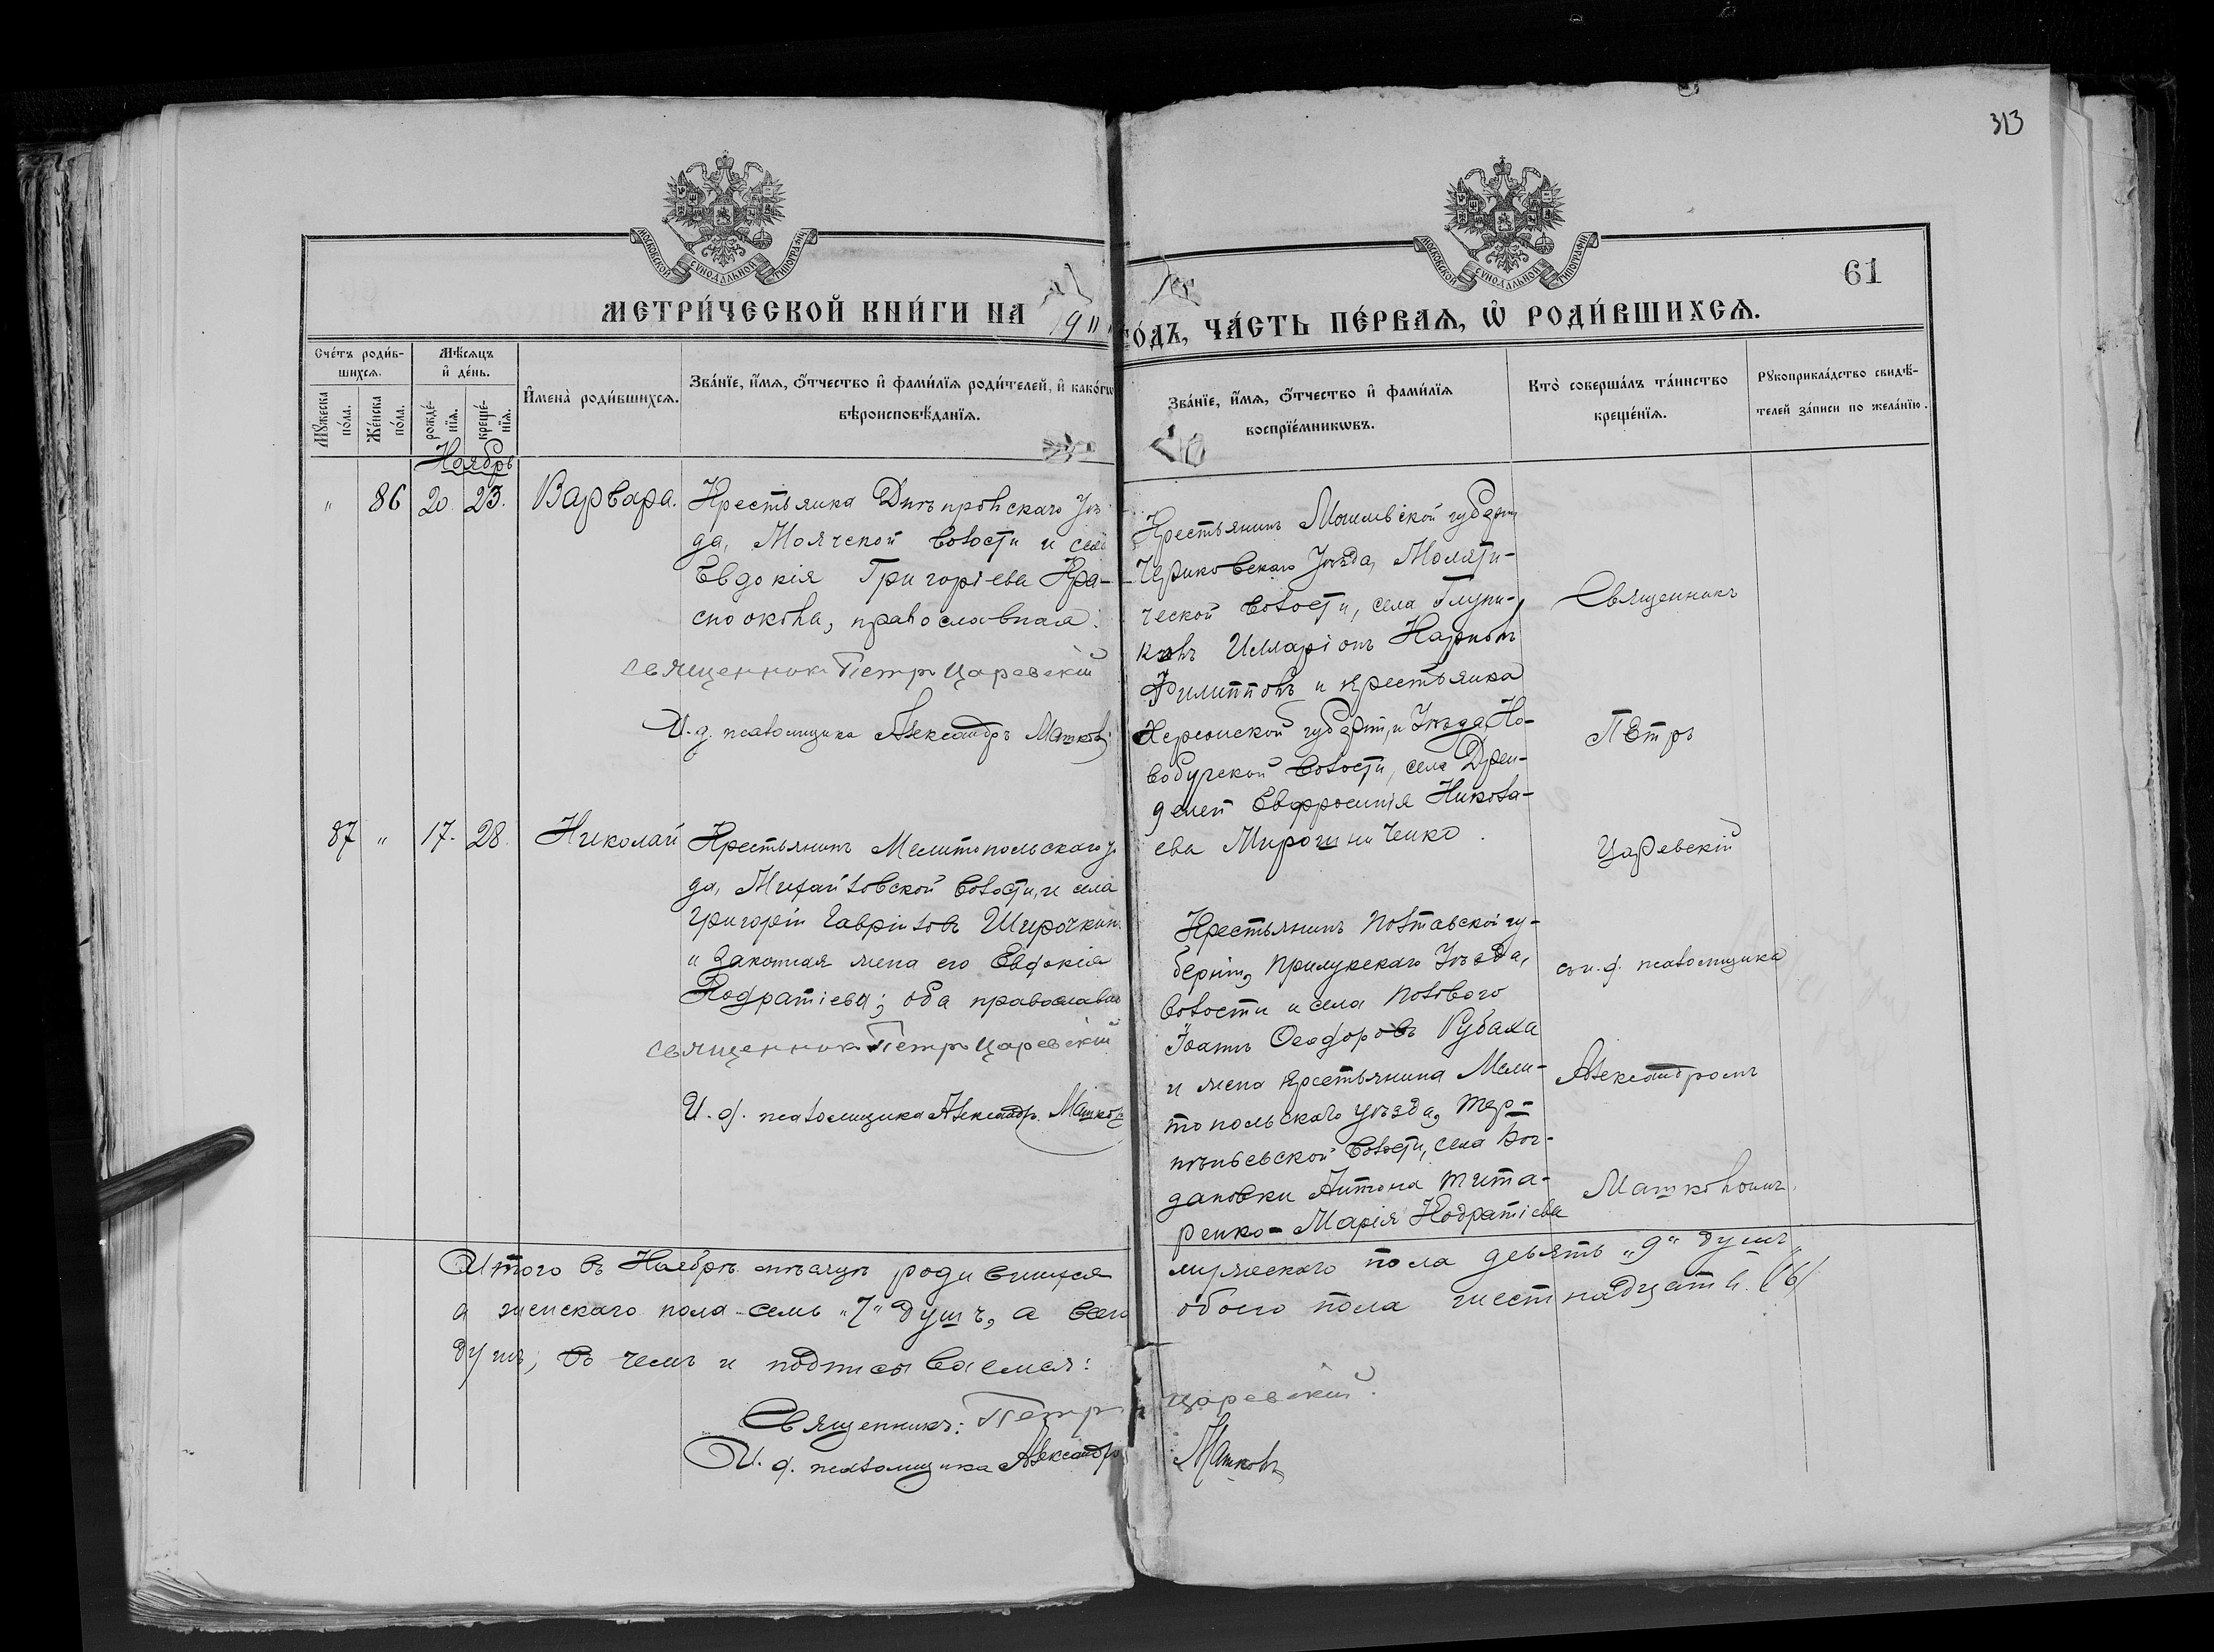 313
МОСКОВСКОЙ СѴНОДАЛЬНОЙ ТИПОГРАФІИ
МОСКОВСКОЙ СѴНОДАЛЬНОЙ ТИПОГРАФІИ
61
МЕТРИ́ЧЕСКОЙ КНИ́ГИ НА 1911
ГО́ДЪ, ЧА́СТЬ ПЕ́РВАѦ, Ѡ РОДИ́ВШИХСѦ.
Сче́тъ роди́в-
шихсѧ.
Мꙋ́жеска по́ла.
Же́нска по́ла.
Мѣ́сѧцъ
и҆ де́нь.
рожде́-нїѧ.
креще́-нїѧ.
И҆мена̀ роди́вшихсѧ.
Зва́нїе, и҆́мѧ, ѻ҆́тчество и҆ фами́лїѧ роди́телей, и҆ како́гѡ
вѣроисповѣ́данїѧ.
Зва́нїе, и҆́мѧ, ѻ҆́тчество и҆ фами́лїѧ
воспрїе́мникѡвъ.
Кто̀ соверша́лъ та́инство
креще́нїѧ.
Рꙋкоприкла́дство свидѣ́-
телей за́писи по жела́нїю.
Ноябрь
" 86 20. 23. Варвара.
Крестьянка Днѣпровскаго Уѣз
да, Маячской волости и села
Евдокія Григоріева Кра-
сноокова, православная.
Священник Петр Царевскій
И. д. псаломщика Александръ Машковъ
Крестьянинъ Могилевской губерніи
Чериковскаго Уѣзда, Моляти-
ческой волости, села
Илларіонъ Карповъ
Филипповъ и крестьянка
Херсонской губерніи и Уѣзда, Но-
вобугской волости, села
Евфросинія Никола-
ева Мирошниченко.
Священникъ
Петръ
Царевскій
съ и. д. псаломщика
Александромъ
Машковымъ.
87 " 17. 28. Николай
Крестьянинъ Мелитопольскаго у
да, Михайловской волости, и села
Григорій Гавріиловъ Широчкинъ
и законная жена его Евдокія
Кодратіева; оба православн
Священник Петр Царевскій
И. д. псаломщика Александръ Машковъ
Крестьянинъ Полтавской гу-
берніи, Прилукскаго Уѣзда,
волости и села Полового
Іоаннъ Ѳеодоровъ Рубаха
и жена крестьянина Мели-
топольскаго уѣзда, Тер-
пѣньевской волости, села Бог-
дановки Антона Тита-
ренко - Марія Кодратіева
Итого въ Ноябрѣ мѣсяцѣ родившихся
мужескаго пола девять "9" душъ,
а женскаго пола семь "7" душъ, а всего
обоего пола шестнадцать (16)
душъ, въ чемъ и подписываемся:
Священникъ: Петр Царевскій.
И. д. псаломщика Александръ Машковъ